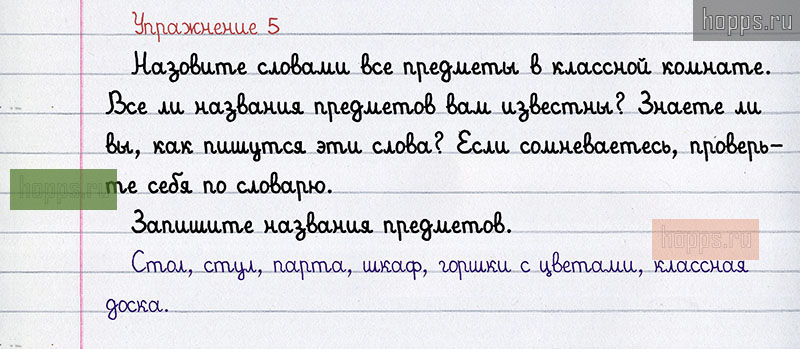 hopps.ru
Упражнение 5
Назовите словами все предметы в классной комнате.
Все ли названия предметов вам известны? Знаете ли
вы, как пишутся эти слова? Если сомневаетесь, проверь-
те себя по словарю.
hopps.ru
Запишите названия предметов.
hopps.ru
Стол, стул, парта, шкаф, горшки с цветами, классная
доска.